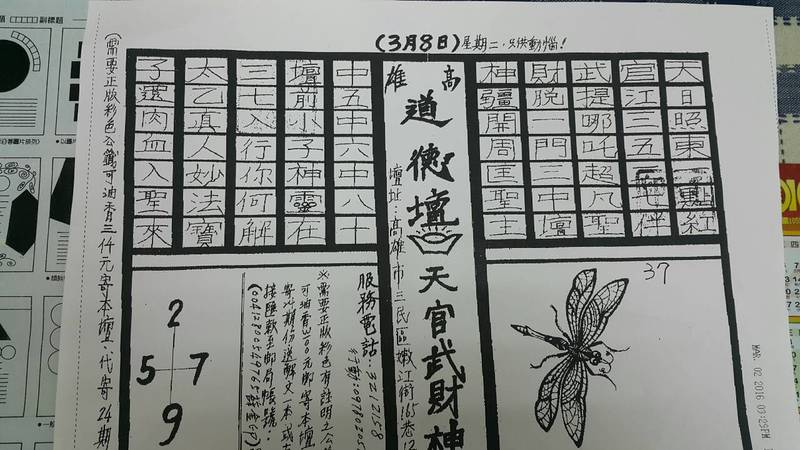 (3月8日)星期二.只供動腦!
天日照東一點紅
官江三五
武提哪吒超凡聖
財脫一門三中壇
神疆開周匡聖王
高雄
道德壇
天官武財神
壇址:高雄市三民區嫩江街165巷12
中五中六中八十
壇前小子神靈在
三七入行你何解
太乙真人妙法寶
子還肉血入聖來
37
服務電話:3212158
※需要正版彩色有註明之公
可油香300元郵寄本壇
2
5 7
9
(需要正版彩色公籤可油香三仟元寄本壇.代寄24期
MAR 02 2016 03:25PM
副標題